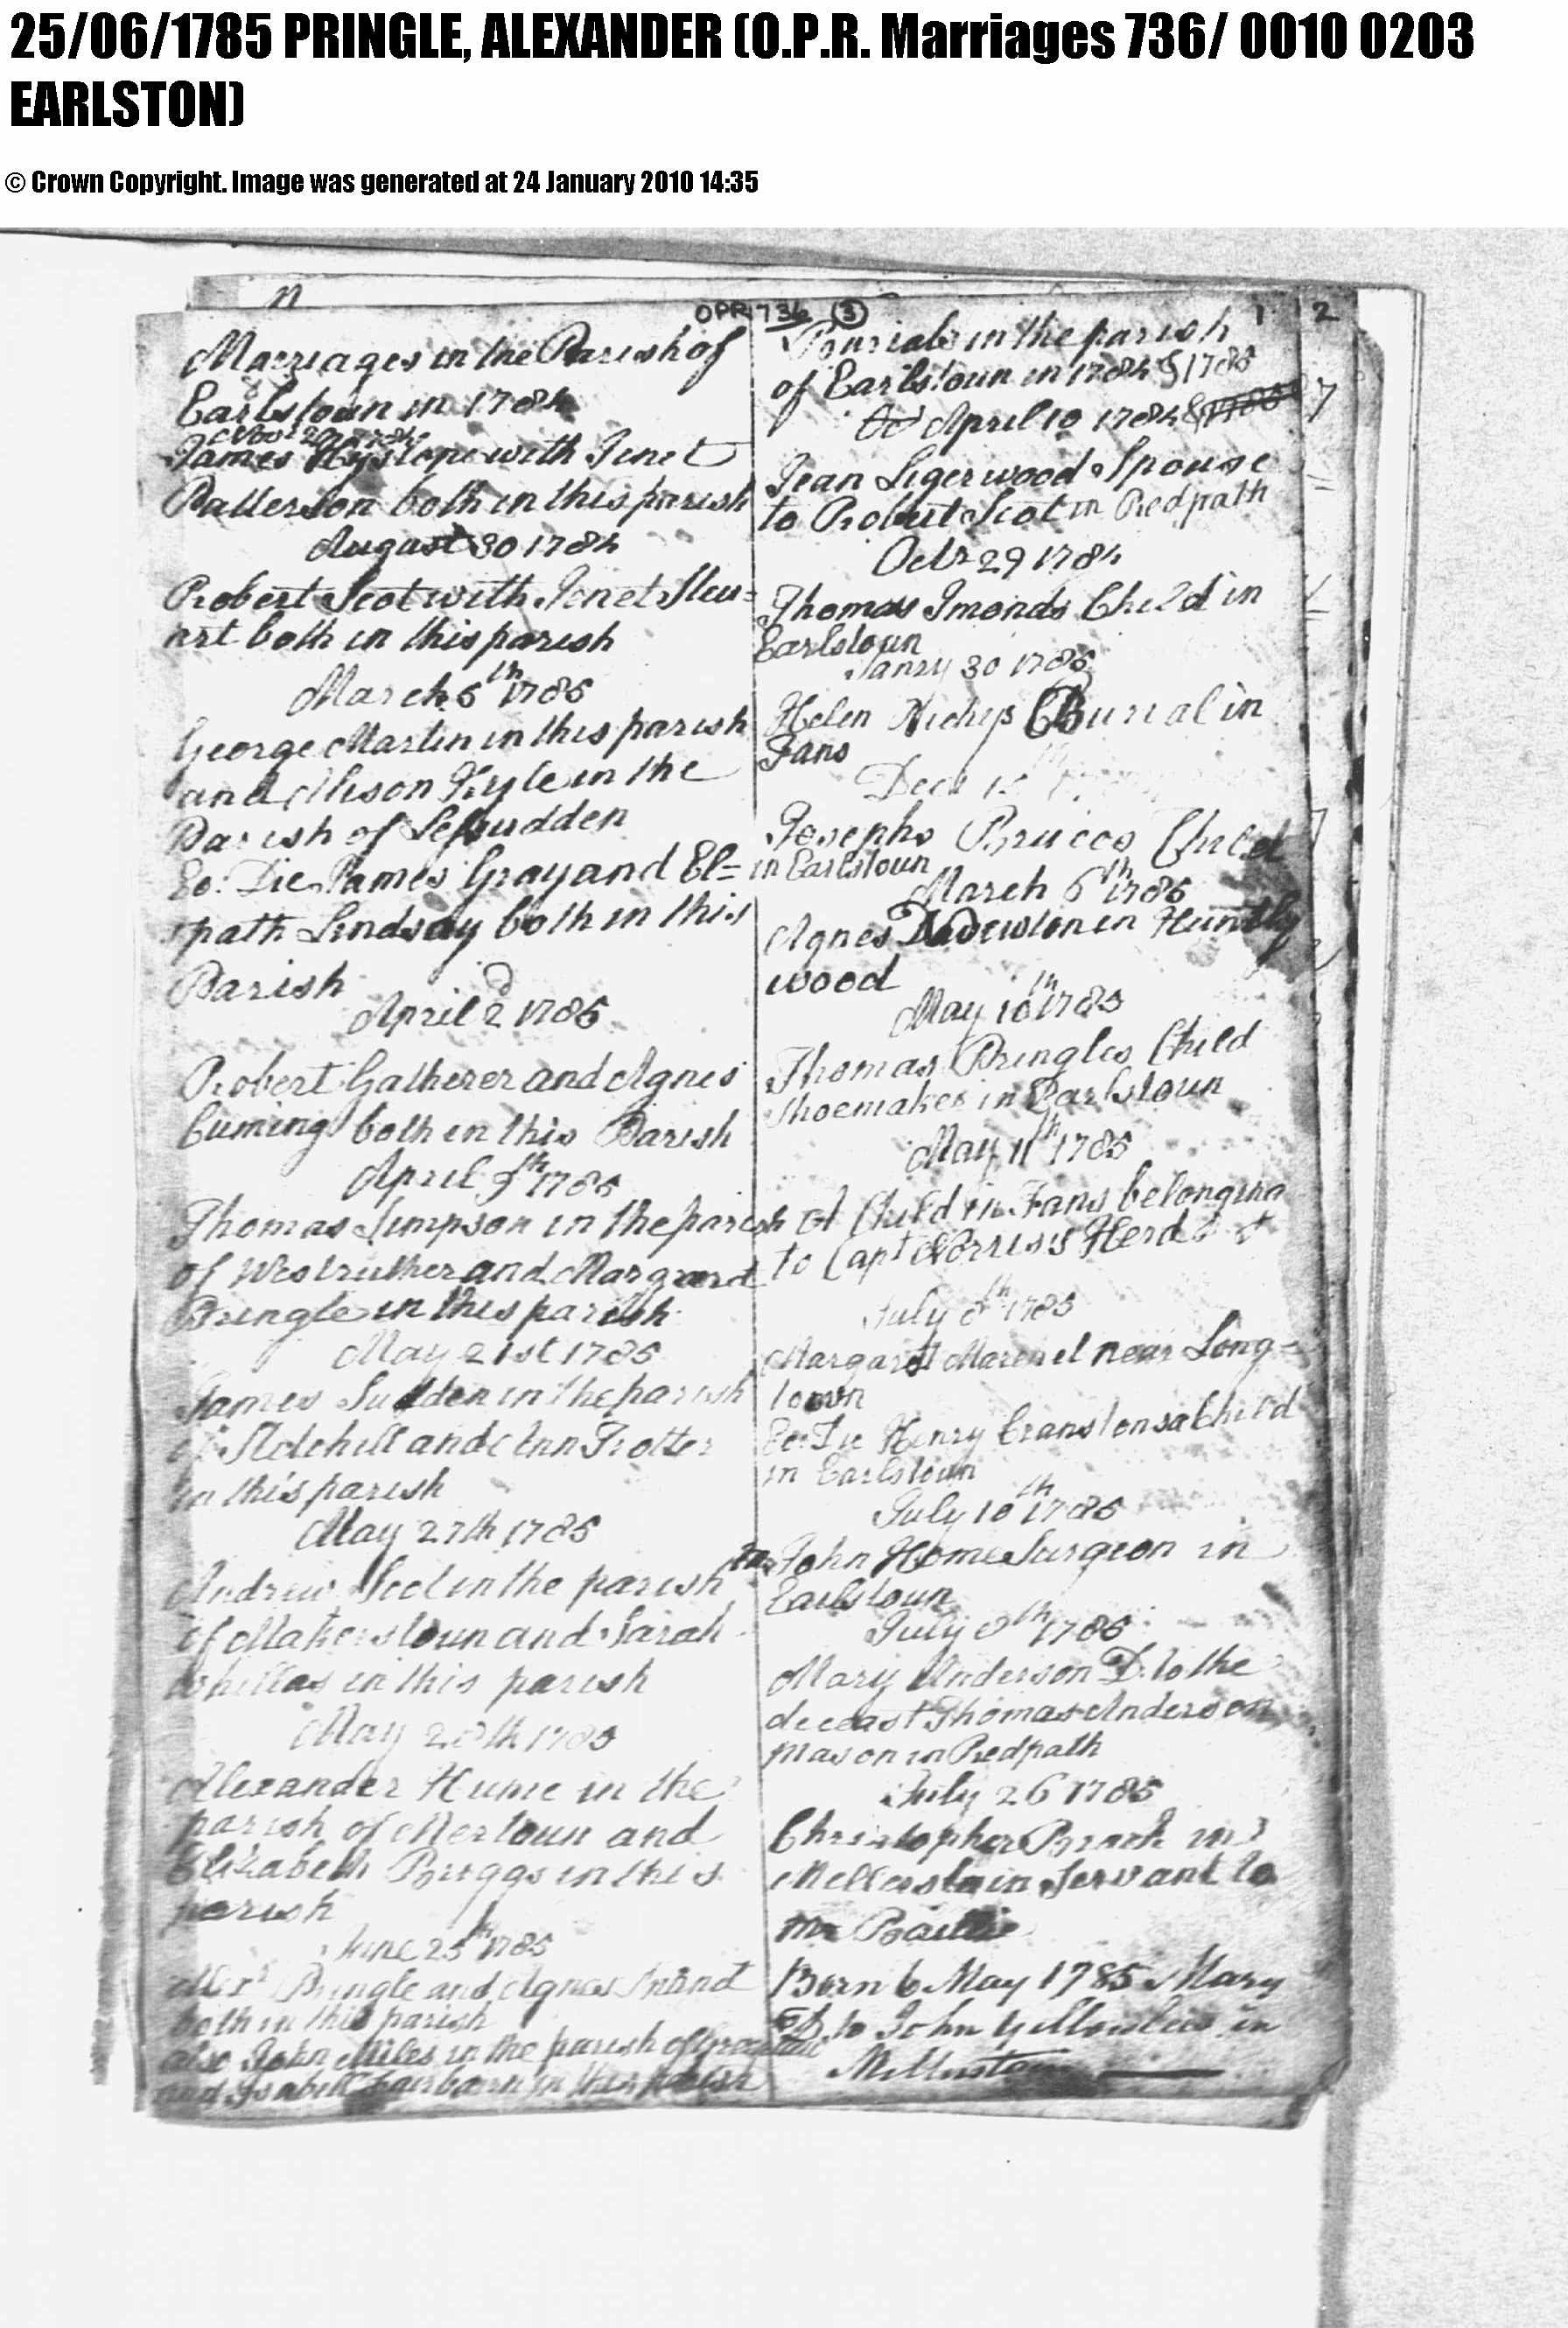 25/06/1785 PRINGLE, ALEXANDER (O.P.R. Marriages 736/ 0010 0203
EARLSTON)
© Crown Copyright. Image was generated at 24 January 2010 14:35
OPR 736 (3)
1 2
Marriages in the Parish of
Earlstoun in 1784
James Hyslope with Jenet
Patterson both in this parish
August 30 1784
Robert Scot with Jenet Stew=
art both in this parish
March 5th 1785
George Martin in this parish
and Alison Kyle in the
Parish of Lessudden
Eo: Die James Gray and El=
spath Lindsay both in this
Parish
April 2d 1785
Robert Gatherer and Agnes
Cuming both in this Parish
April 9th 1785
Thomas Simpson in the parish
of Westruther and Margaret
Pringle in this parish
May 21st 1785
James Sudden in the parish
of Stitchill and Ann Trotter
in this parish
May 27th 1785
Andrew Scot in the parish
of Makerstoun and Sarah
Whillas in this parish
May 28th 1785
Alexander Hume in the
parish of Mertoun and
Elizabeth Briggs in this
parish
June 25th 1785
Alexr Pringle and Agnes
both in this parish
also John Miles in the parish of
and Isabell Fairbairn in this parish
Burials in the parish
of Earlstoun in 1784 & 1785
April 10 1784
Jean Ligerwood Spouse
to Robert Scot in Redpath
Octr 29 1784
Thomas Imonds Child in
Earlstoun
Janry 30 1785
Helen Burial in
Fans
Decr 15
Josephs Bruces Child
in Earlstoun
March 6th 1785
Agnes Newton in Huntly
wood
May 10th 1785
Thomas Pringles Child
Shoemaker in Earlstoun
May 11th 1785
A Child in Fans belonging
to Capt Norriss Herd
July 8th 1785
Margaret near Long=
town
Eo: Die Henry Cranstons a Child
in Earlstoun
July 10th 1785
Mr John Home Surgeon in
Earlstoun
July 8th 1785
Mary Anderson D. to the
deceast Thomas Anderson
Mason in Redpath
July 26 1785
Christopher Brack in
Mellerstain Servant to
Mr Baillie
Born 6 May 1785 Mary
to John in
Mellerstain